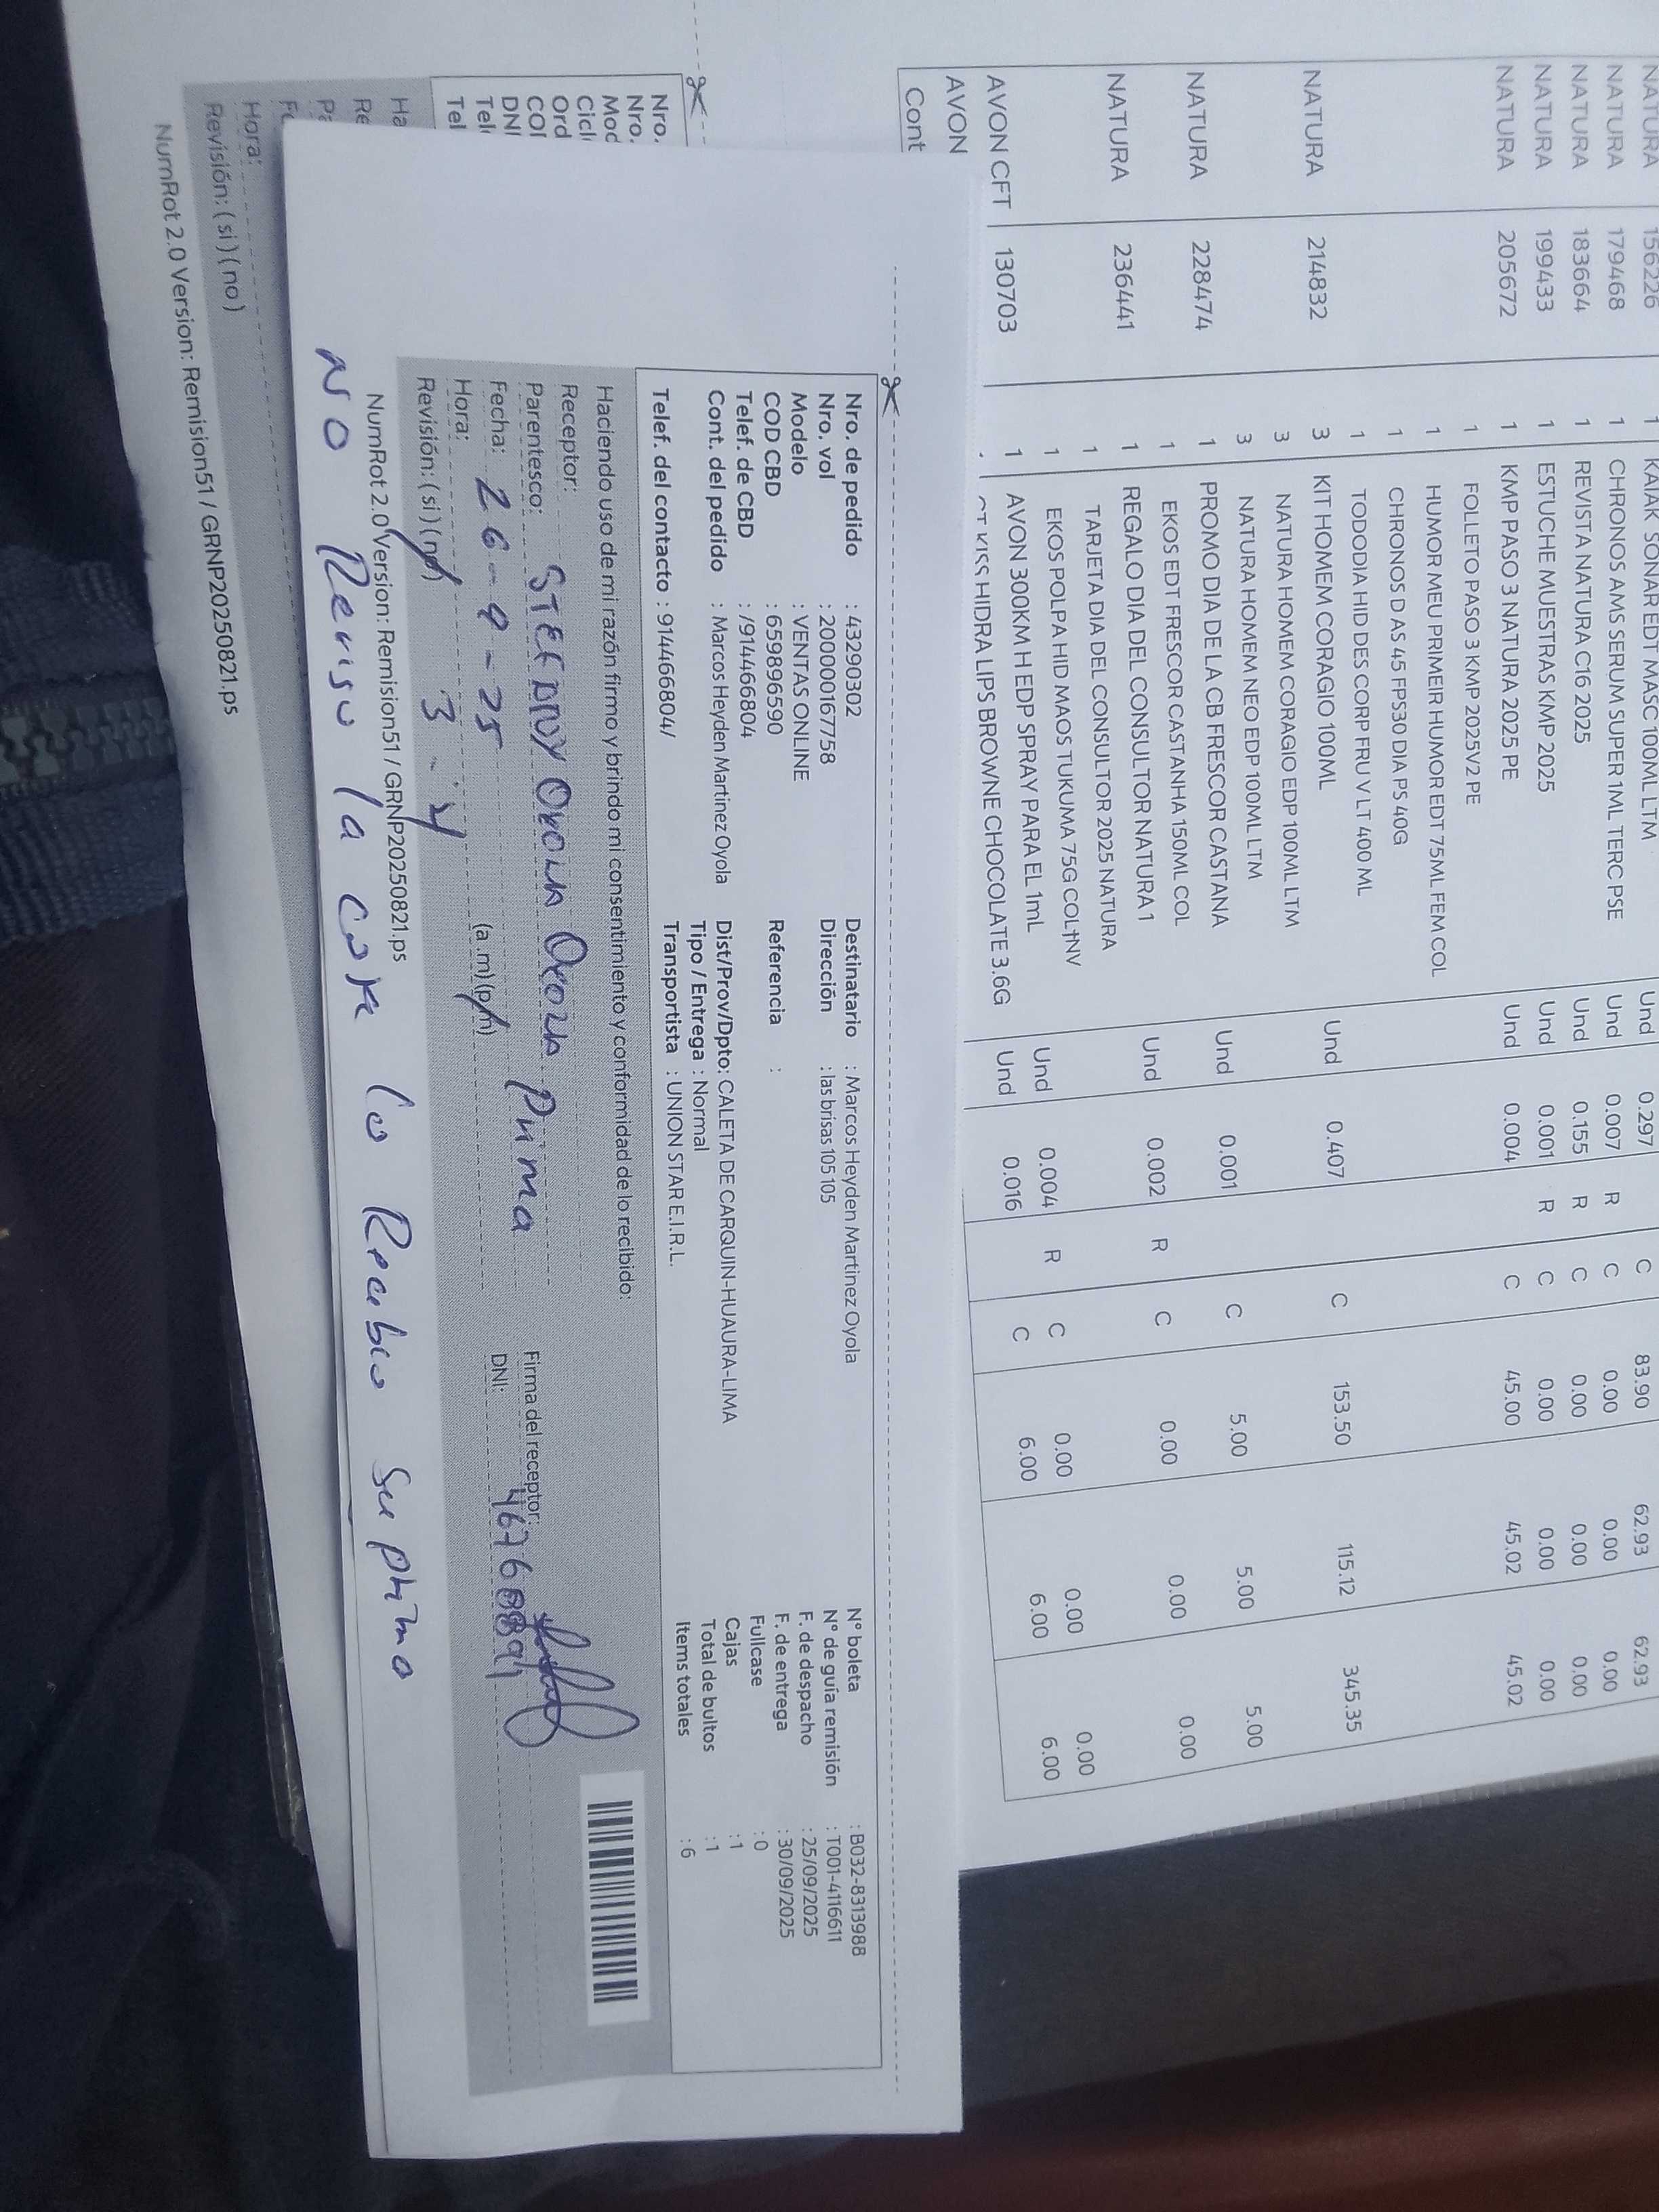 NATURA 156226 1 KAIAK SONAR EDT MASC 100ML LTM Und 0.297 C 83.90 62.93 62.93
NATURA 179468 1 CHRONOS AMS SERUM SUPER 1ML TERC PSE Und 0.007 R C 0.00 0.00 0.00
NATURA 183664 1 REVISTA NATURA C16 2025 Und 0.155 R C 0.00 0.00 0.00
NATURA 199433 1 ESTUCHE MUESTRAS KMP 2025 Und 0.001 R C 0.00 0.00 0.00
NATURA 205672 1 KMP PASO 3 NATURA 2025 PE Und 0.004 C 45.00 45.02 45.02
1 FOLLETO PASO 3 KMP 2025V2 PE
1 HUMOR MEU PRIMEIR HUMOR EDT 75ML FEM COL
1 CHRONOS D AS 45 FPS30 DIA PS 40G
1 TODODIA HID DES CORP FRU V LT 400 ML
NATURA 214832 3 KIT HOMEM CORAGIO 100ML Und 0.407 C 153.50 115.12 345.35
3 NATURA HOMEM CORAGIO EDP 100ML LTM
3 NATURA HOMEM NEO EDP 100ML LTM
NATURA 228474 1 PROMO DIA DE LA CB FRESCOR CASTANA Und 0.001 C 5.00 5.00 5.00
1 EKOS EDT FRESCOR CASTANHA 150ML COL
NATURA 236441 1 REGALO DIA DEL CONSULTOR NATURA 1 Und 0.002 R C 0.00 0.00 0.00
1 TARJETA DIA DEL CONSULTOR 2025 NATURA
1 EKOS POLPA HID MAOS TUKUMA 75G COL+NV
AVON CFT 130703 1 AVON 300KM H EDP SPRAY PARA EL 1mL Und 0.004 R C 0.00 0.00 0.00
AVON KISS HIDRA LIPS BROWNE CHOCOLATE 3.6G Und 0.016 C 6.00 6.00 6.00
Cont
Nro. de pedido : 43290302 Destinatario : Marcos Heyden Martinez Oyola N° boleta : B032-8313988
Nro. vol : 20000167758 Dirección : las brisas 105 105 N° de guía remisión : T001-4116611
Modelo : VENTAS ONLINE F. de despacho : 25/09/2025
COD CBD : 659896590 Referencia : F. de entrega : 30/09/2025
Telef. de CBD : /914466804 Fullcase : 0
Cont. del pedido : Marcos Heyden Martinez Oyola Dist/Prov/Dpto: CALETA DE CARQUIN-HUAURA-LIMA Cajas : 1
Tipo / Entrega : Normal Total de bultos : 1
Telef. del contacto : 914466804/ Transportista : UNION STAR E.I.R.L. Items totales : 6
Haciendo uso de mi razón firmo y brindo mi consentimiento y conformidad de lo recibido:
Receptor:
Parentesco: Prima Firma del receptor:
Fecha: 26-9-25 DNI:
Hora: 3 (a.m)(p.m)
Revisión: ( si ) ( no )
NumRot 2.0 Version: Remision51 / GRNP20250821.ps
NO Reviso la caja lo Recibio su primo
Nro.
Nro.
Mod
Cicl
Ord
COI
DNI
Tel
Tel
Ha
Re
Pa
Fe
Hora:
Revisión: ( si ) ( no )
NumRot 2.0 Version: Remision51 / GRNP20250821.ps